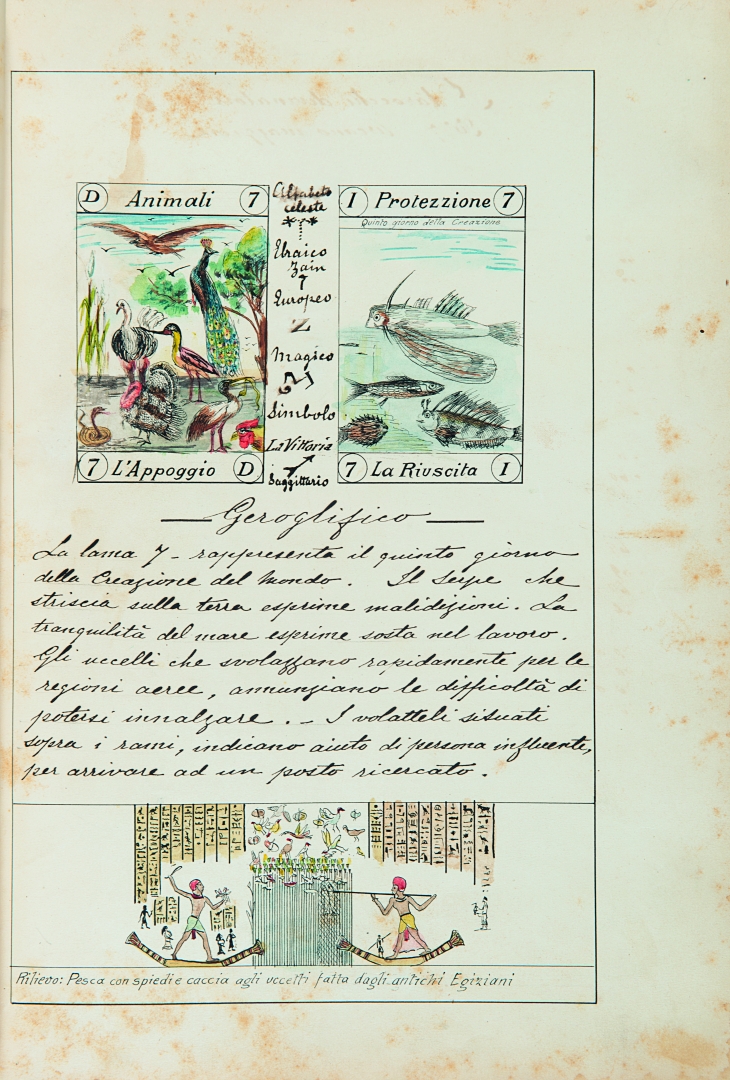 D Animali 7
7 L'Appoggio D
Alfabeto
celeste
Ebraico
Zain
Europeo
Z
Magico
Simbolo
La Vittoria
Saggittario
I Protezzione 7
Quinto giorno della Creazione
7 La Riuscita I
Geroglifico
La lama 7 - rappresenta il quinto giorno
della Creazione del Mondo. Il serpe che
striscia sulla terra esprime malidizioni. La
tranquilità del mare esprime sosta nel lavoro.
Gli uccelli che svolazzano rapidamente per le
regioni aeree, annunziano le difficoltà di
potersi innalzare. - I volatteli situati
sopra i rami, indicano aiuto di persona influente,
per arrivare ad un posto ricercato.
Rilievo: Pesca con spiedi e caccia agli uccelli fatta dagli antichi Egiziani